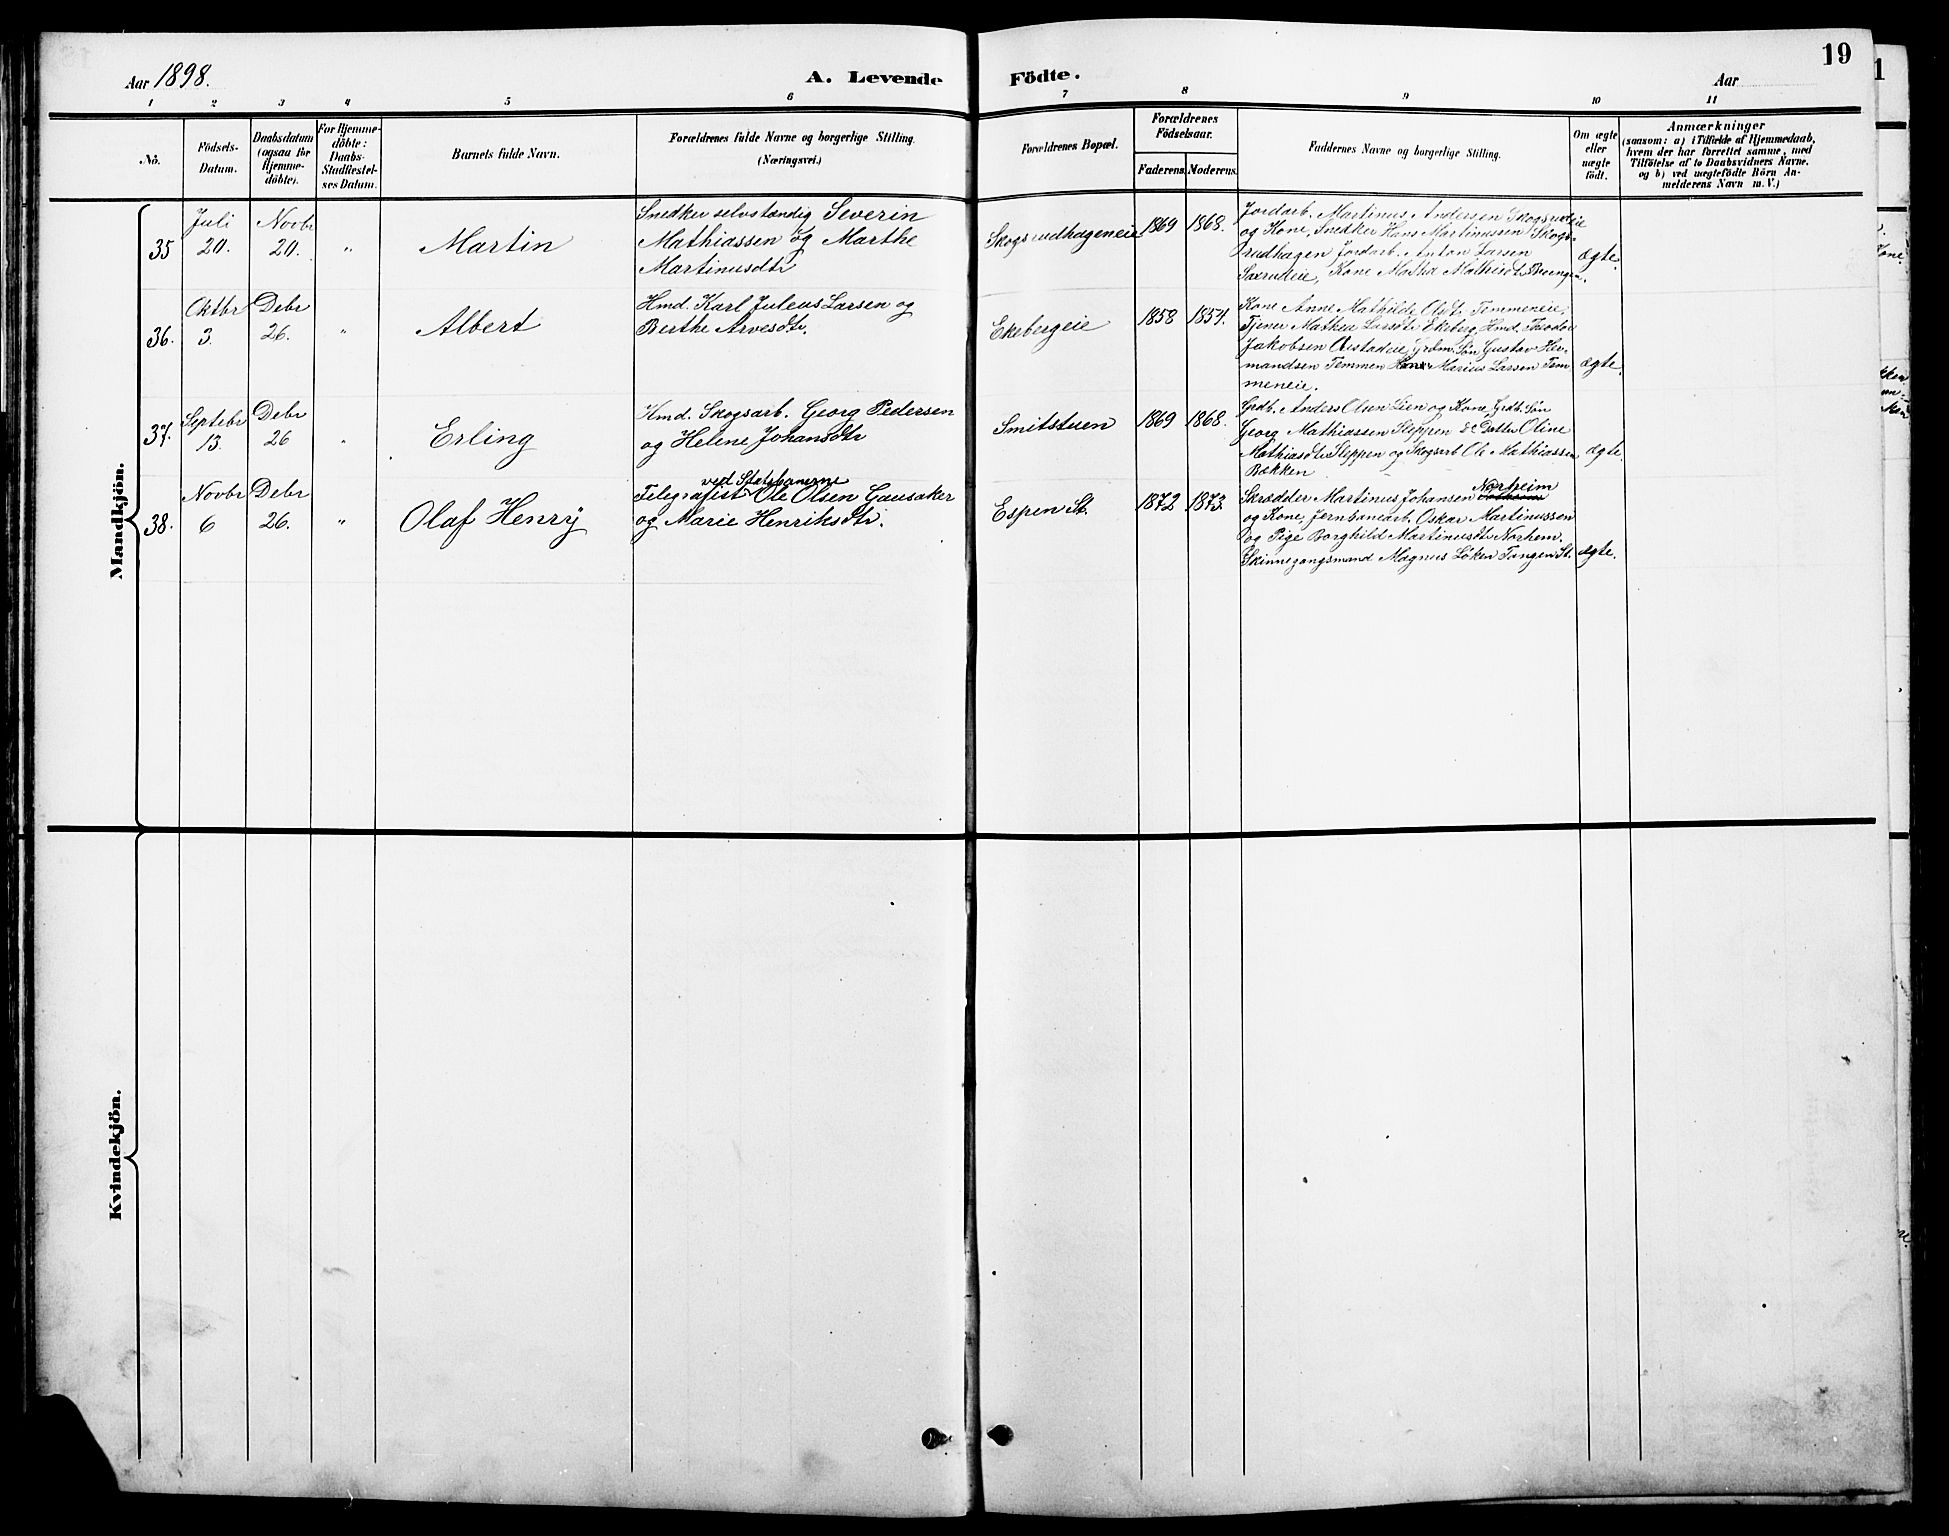 19
Aar 1898.
A. Levende Födte.
Aar
1 2 3 4 5 6 7 8 9 10 11
No.
Födsels-
Datum.
Daabsdatum
(ogsaa for
Hjemme-
döbte).
For Hjemme-
döbte:
Daabs-
Stadfestel-
ses Datum.
Barnets fulde Navn.
Forældrenes fulde Navne og borgerlige Stilling.
(Næringsvei.)
Forældrenes Bopæl.
Forældrenes
Födselsaar.
Faderens. Moderens.
Faddernes Navne og borgerlige Stilling.
Om ægte
eller
uægte
födt.
Anmærkninger
(saasom: a) i Tilfælde af Hjemmedaab,
hvem der har forrettet samme, med
Tilföielse af to Daabsvidners Navne,
og b) ved uægtefödte Börn An-
melderens Navn m. V.)
Mandkjön.
35
Juli
20.
Novbr
20.
"
Martin
Snedker selvstændig Severin
Mathiassen og Marthe
Martinusdtr
Skogsrudhageneie
1869 1868.
Jordarb. Martinus Andersen Skogsrudeie
og Kone, Snedker Hans Martinussen Skogs-
rudhagen Jordarb. Anton Larsen
Saxrudeie, Kone Matha Mathisdtr
ægte.
36.
Oktbr
3.
Debr
26.
"
Albert
Hmd. Karl Julius Larsen og
Berthe Arvesdtr.
Ekebergeie
1858 1857.
Kone Anne Mathilde Olsdtr Temmeneie,
Tjener Mathea Larsdtr Ekeberg, Hmd. Theodor
Jakobsen Grdm. Søn Gustav Her-
mandsen Temmen Marius Larsen Tem-
meneie.
ægte.
37.
Septebr
13.
Debr
26
"
Erling
Hmd. Skogsarb. Georg Pedersen
og Helene Johansdtr
Smitstuen
1869 1868.
Grdb. Anders Olsen Lien og Kone, Grdb. Søn
Georg Mathiassen Sleppen do Datter Oline
Mathiasdtr Sleppen og Skogsarb Ole Mathiassen
Bækken
ægte.
38.
Novbr
6
Debr
26.
"
Olaf Henry
ved Statsbanerne
Telegrafist Ole Olsen Gausaker
og Marie Henriksdtr.
Espen St.
1872 1873.
Norheim
Skrædder Martinus Johansen
og Kone, Jernbanearb. Oskar Martinussen
og Pige Borghild Martinusdtr Norhem.
Skinnegangsmand Magnus Løken Tangen St.
ægte.
Kvindekjön.